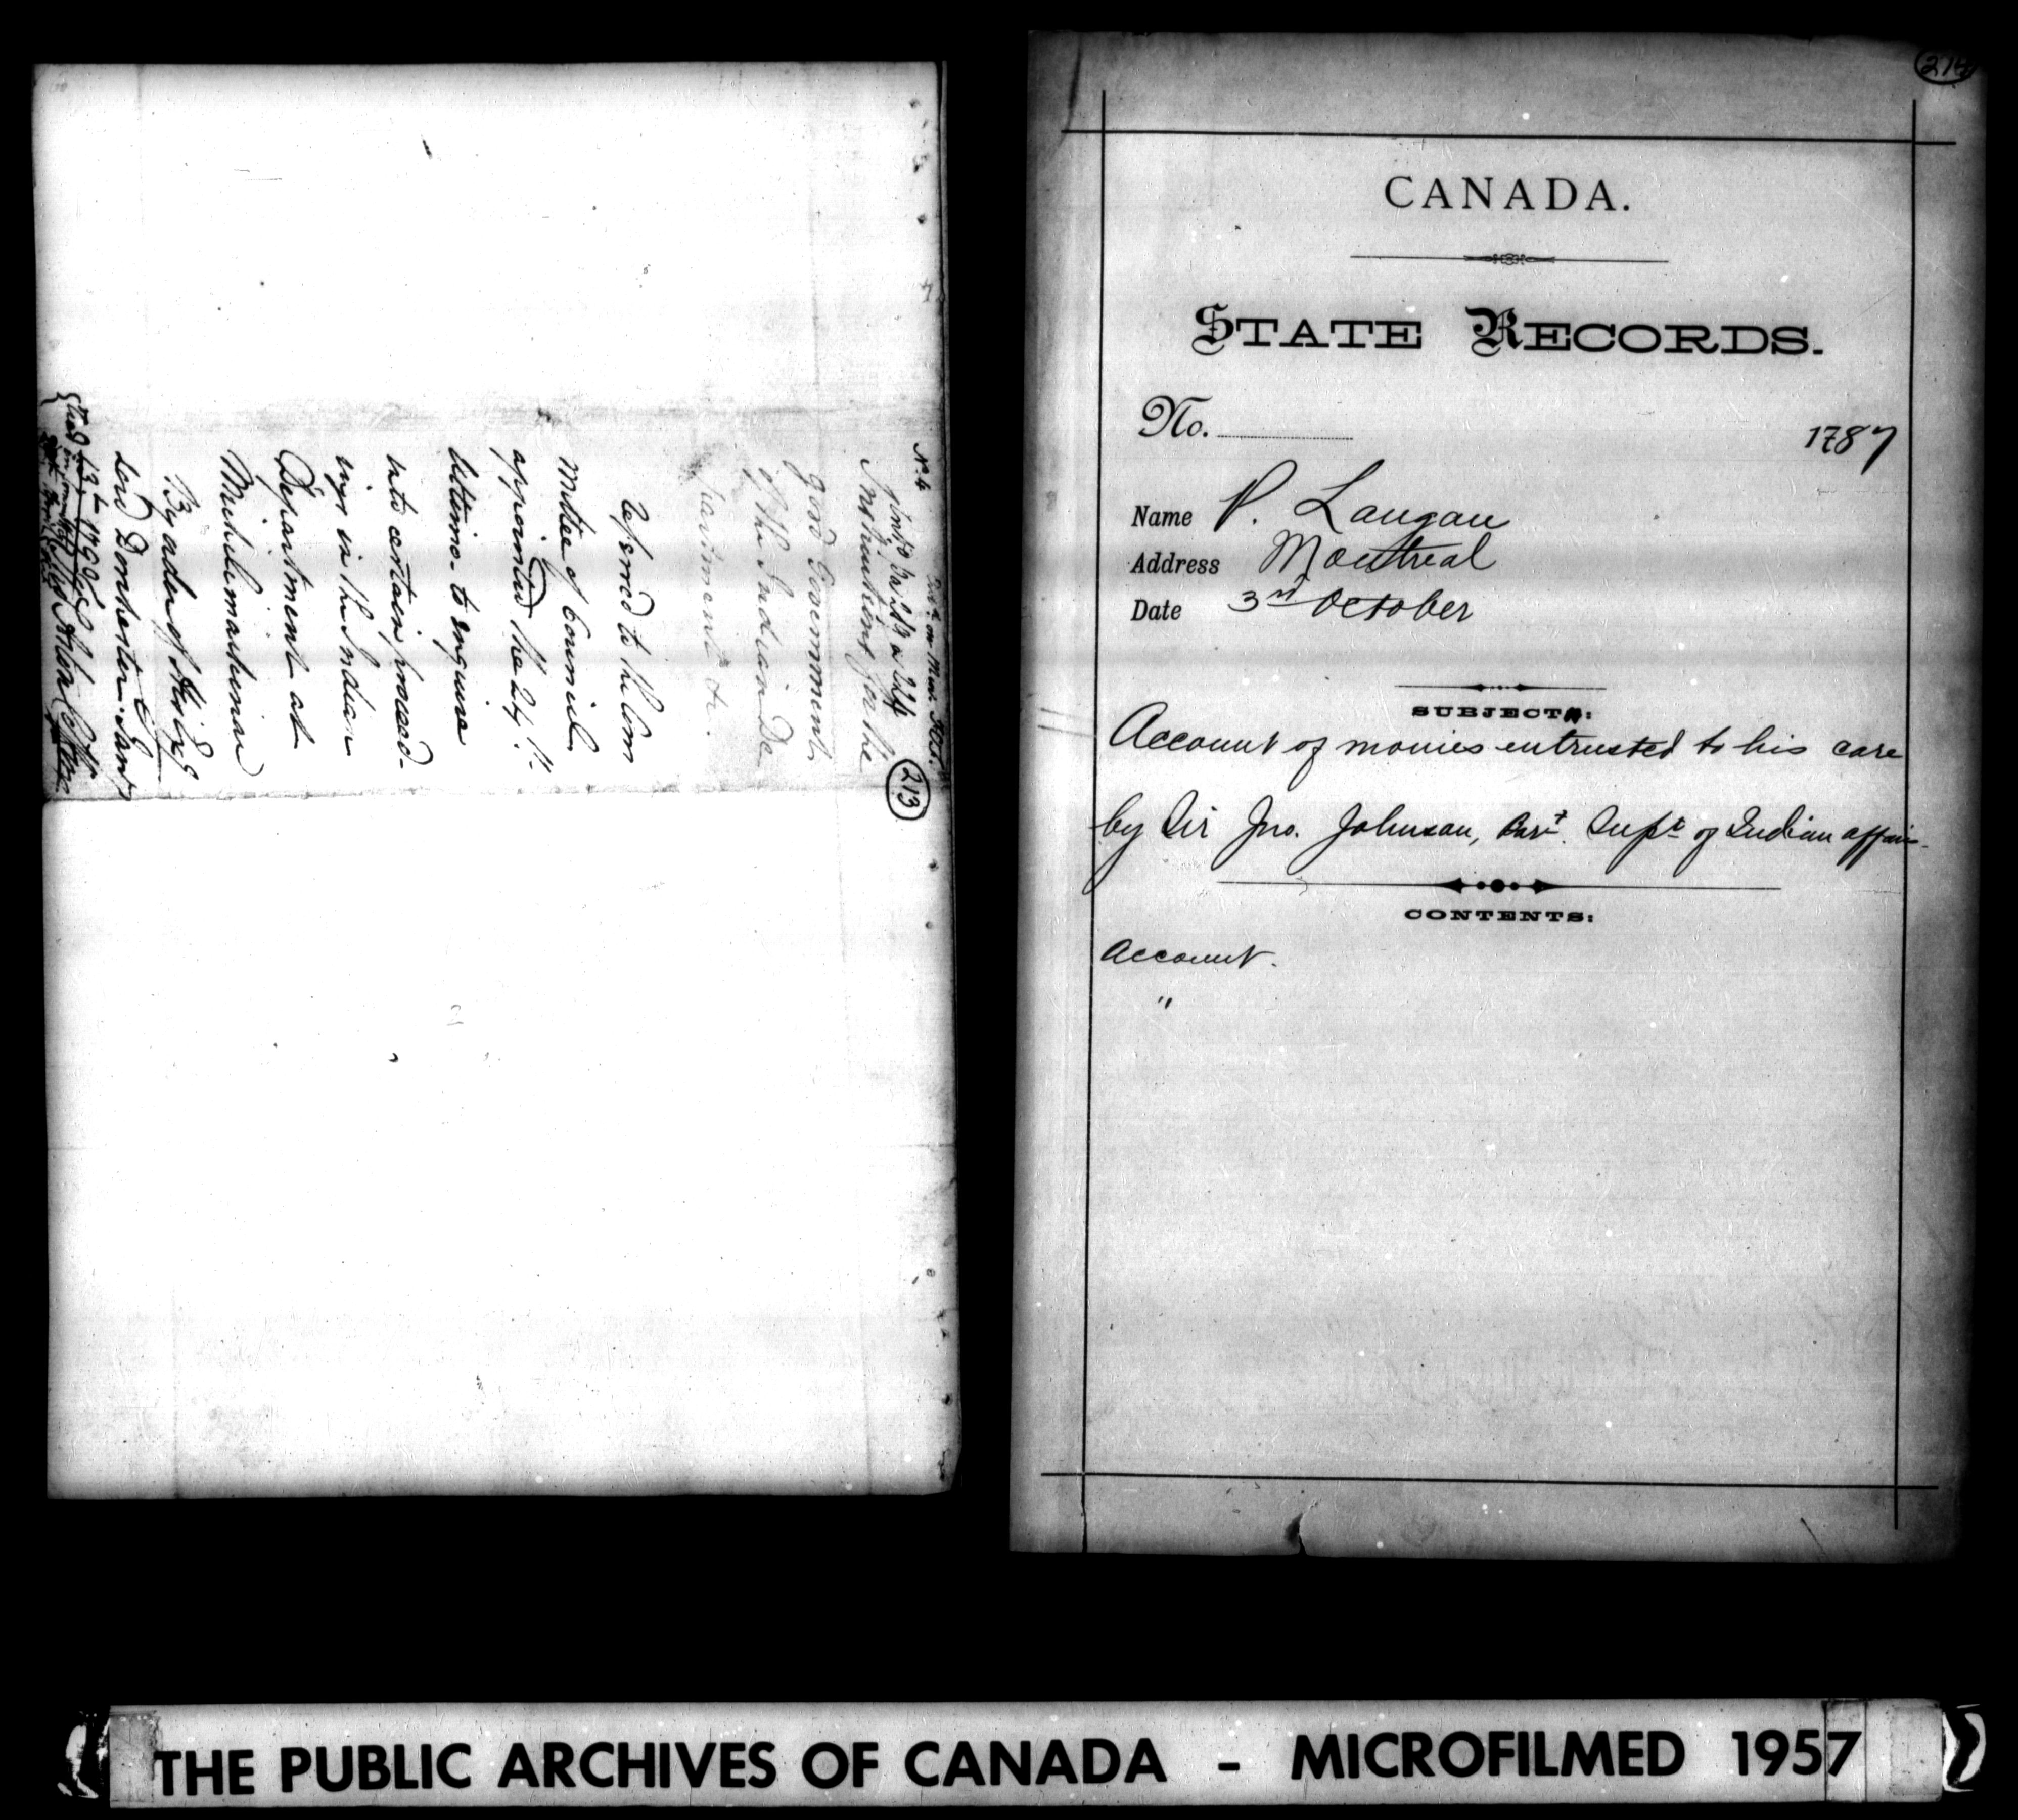 No. 4
Instructions for the
good Government
of the Indian De
partment &c.
Referred to the Com
mittee of Council
appointed the 24th
Ultimo to enquire
into certain proceed-
ings in the Indian
Department at
Michilimackinac
By order of His Exy
Lord Dorchester
213
214
CANADA.
STATE RECORDS.
No. 1787
Name P. Langan
Address Montreal
Date 3rd October
SUBJECT:
Account of monies entrusted to his care
by Sir Jno. Johnson, Bart. Supt of Indian affairs.
CONTENTS:
Account.
"
THE PUBLIC ARCHIVES OF CANADA - MICROFILMED 1957